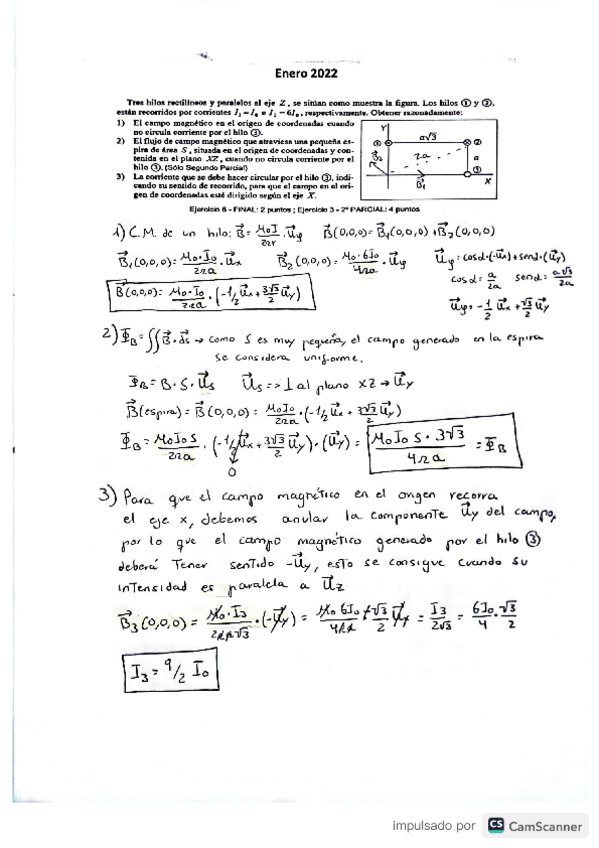 Enero 2022
Tres hilos rectilíneos y paralelos al eje Z, se sitúan como muestra la figura. Los hilos ① y ②,
están recorridos por corrientes I₁ = I₀ e I₂ = 6I₀, respectivamente. Obtener razonadamente:
1) El campo magnético en el origen de coordenadas cuando
no circula corriente por el hilo ③.
2) El flujo de campo magnético que atraviesa una pequeña es-
pira de área S, situada en el origen de coordenadas y con-
tenida en el plano XZ, cuando no circula corriente por el
hilo ③. (Sólo Segundo Parcial)
3) La corriente que se debe hacer circular por el hilo ③, indi-
cando su sentido de recorrido, para que el campo en el ori-
gen de coordenadas esté dirigido según el eje X.
Y
a√3
① ②
2a
a
B₂
B₁
③
X
Ejercicio 6 - FINAL: 2 puntos ; Ejercicio 3 - 2º PARCIAL: 4 puntos
1) C.M. de un hilo: B = μ₀I/2πr · Uy B(0,0,0) = B₁(0,0,0) + B₂(0,0,0)
B₁(0,0,0) = μ₀·I₀/2πa · Ux B₂(0,0,0) = μ₀·6I₀/4πa · Uy Uy = cosα·(-Ux) + senα·(Uy)
cosα = a/2a senα = a√3/2a
B(0,0,0) = μ₀·I₀/2πa · (-1/2 Ux + 3√3/2 Uy)
Uy = -1/2 Ux + √3/2 Uy
2) Φ_B = ∬ B·ds → como S es muy pequeña, el campo generado en la espira
se considera uniforme.
Φ_B = B · S · Us Us => ⊥ al plano XZ → Uy
B(espira) = B(0,0,0) = μ₀I₀/2πa · (-1/2 Ux + 3√3/2 Uy)
Φ_B = μ₀I₀S/2πa · (-1/2 Ux + 3√3/2 Uy) · (Uy) = μ₀I₀S · 3√3/4πa = Φ_B
0
3) Para que el campo magnético en el origen recorra
el eje x, debemos anular la componente Uy del campo,
por lo que el campo magnético generado por el hilo ③
deberá tener sentido -Uy, esto se consigue cuando su
intensidad es paralela a Uz
B₃(0,0,0) = μ₀·I₃/2πa√3 · (-Uy) = μ₀6I₀/4πa · √3/2 Uy = I₃/2√3 = 6I₀/4 · √3/2
I₃ = 9/2 I₀
impulsado por CS CamScanner